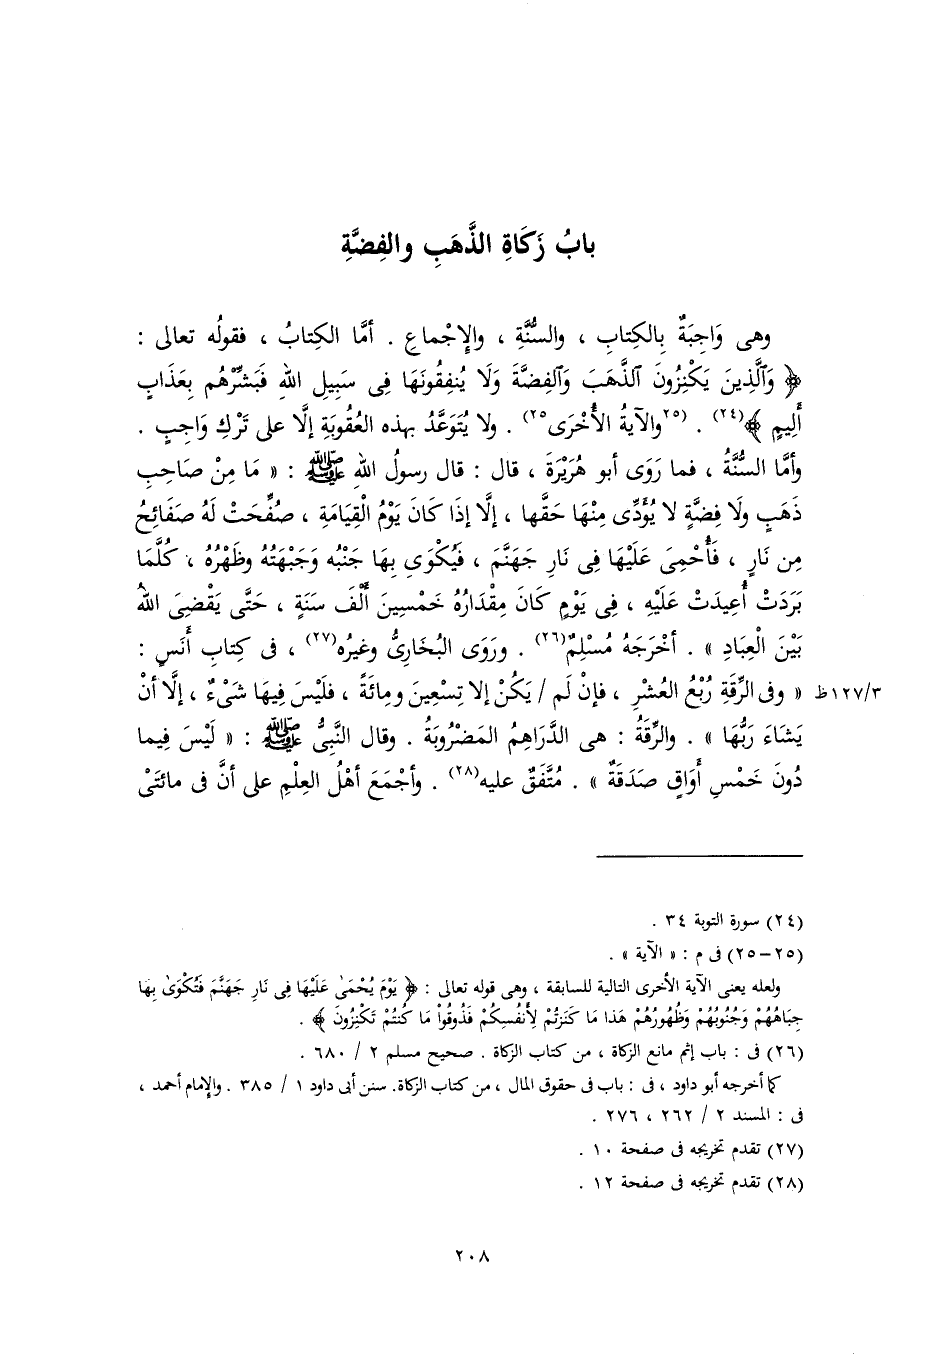 بابُ زَكَاةِ الذَّهَبِ والفِضَّةِ
وهى وَاجِبَةٌ بِالكِتابِ ، والسُّنَّةِ ، والإِجْماعِ . أمَّا الكِتابُ ، فقولُه تعالى :
﴿ وَٱلَّذِينَ يَكْنِزُونَ ٱلذَّهَبَ وَٱلفِضَّةَ وَلَا يُنفِقُونَهَا فِى سَبِيلِ اللهِ فَبَشِّرْهُم بِعَذَابٍ
أَلِيمٍ ﴾(٢٤) . (٢٥والآيةُ الأُخْرَى٢٥) . ولا يُتَوَعَّدُ بهذه العُقُوبَةِ إلَّا على تَرْكِ وَاجِبٍ .
وأمَّا السُّنَّةُ ، فما رَوَى أبو هُرَيْرَةَ ، قال : قال رسولُ اللهِ ﷺ : « مَا مِنْ صَاحِبِ
ذَهَبٍ ولَا فِضَّةٍ لا يُؤَدِّى مِنْهَا حَقَّها ، إلَّا إذَا كَانَ يَوْمُ الْقِيَامَةِ ، صُفِّحَتْ لَهُ صَفَائِحُ
مِن نَارٍ ، فَأُحْمِىَ عَلَيْهَا فِى نَارِ جَهَنَّمَ ، فَيُكْوَى بِهَا جَنْبُه وَجَبْهَتُهُ وظَهْرُهُ ، كُلَّمَا
بَرَدَتْ أُعِيدَتْ عَلَيْهِ ، فِى يَوْمٍ كَانَ مِقْدَارُهُ خَمْسِينَ أَلْفَ سَنَةٍ ، حَتَّى يَقْضِىَ اللهُ
بَيْنَ الْعِبَادِ » . أخْرَجَهُ مُسْلِمٌ(٢٦) . ورَوَى البُخَارِىُّ وغيرُه(٢٧) ، فى كِتابِ أَنَسٍ :
« وفى الرِّقَةِ رُبْعُ العُشْرِ ، فإنْ لَم / يَكُنْ إلا تِسْعِينَ ومِائَةً ، فلَيْسَ فِيهَا شَىْءٌ ، إلَّا أنْ ٣/١٢٧ظ
يَشَاءَ رَبُّهَا » . والرِّقَةُ : هى الدَّرَاهِمُ المَضْرُوبَةُ . وقال النَّبِىُّ ﷺ : « لَيْسَ فِيما
دُونَ خَمْسِ أَوَاقٍ صَدَقَةٌ » . مُتَّفَقٌ عليه(٢٨) . وأجْمَعَ أهْلُ العِلْمِ على أنَّ فى مائتَىْ
(٢٤) سورة التوبة ٣٤ .
(٢٥-٢٥) فى م : « الآية » .
ولعله يعنى الآية الأخرى التالية للسابقة ، وهى قوله تعالى : ﴿ يَوْمَ يُحْمَىٰ عَلَيْهَا فِى نَارِ جَهَنَّمَ فَتُكْوَىٰ بِهَا
جِبَاهُهُمْ وَجُنُوبُهُمْ وَظُهُورُهُمْ هَذَا مَا كَنَزتُمْ لِأَنفُسِكُمْ فَذُوقُواْ مَا كُنتُمْ تَكْنِزُونَ ﴾ .
(٢٦) فى : باب إثم مانع الزكاة ، من كتاب الزكاة . صحيح مسلم ٢ / ٦٨٠ .
كما أخرجه أبو داود ، فى : باب فى حقوق المال ، من كتاب الزكاة. سنن أبى داود ١ / ٣٨٥ . والإمام أحمد ،
فى : المسند ٢ / ٢٦٢ ، ٢٧٦ .
(٢٧) تقدم تخريجه فى صفحة ١٠ .
(٢٨) تقدم تخريجه فى صفحة ١٢ .
٢٠٨